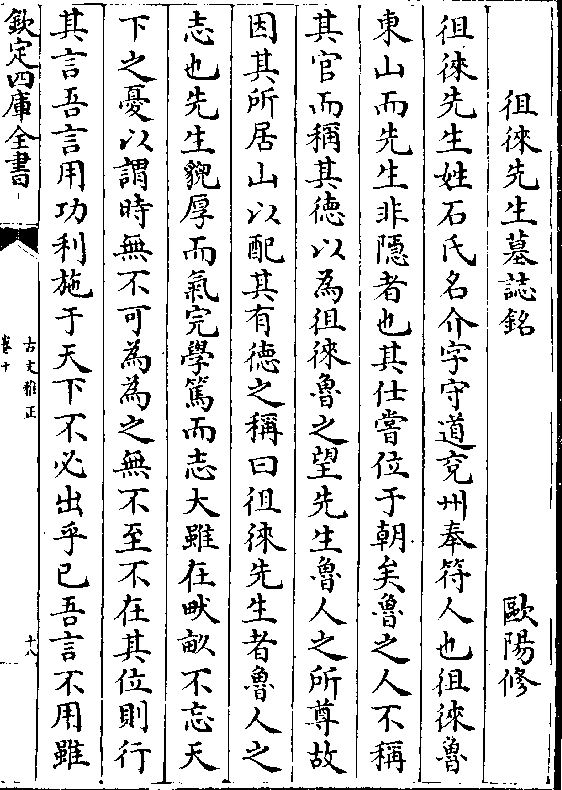 徂徠先生墓誌銘 歐陽修
徂徠先生姓石氏名介字守道兗州奉符人也徂徠魯
東山而先生非隱者也其仕嘗位于朝矣魯之人不稱
其官而稱其德以為徂徠魯之望先生魯人之所尊故
因其所居山以配其有德之稱曰徂徠先生者魯人之
志也先生貌厚而氣完學篤而志大雖在畎畝不忘天
下之憂以謂時無不可為為之無不至不在其位則行
其言吾言用功利施于天下不必出乎已吾言不用雖
欽定四庫全書
古文雅正
卷十
十八